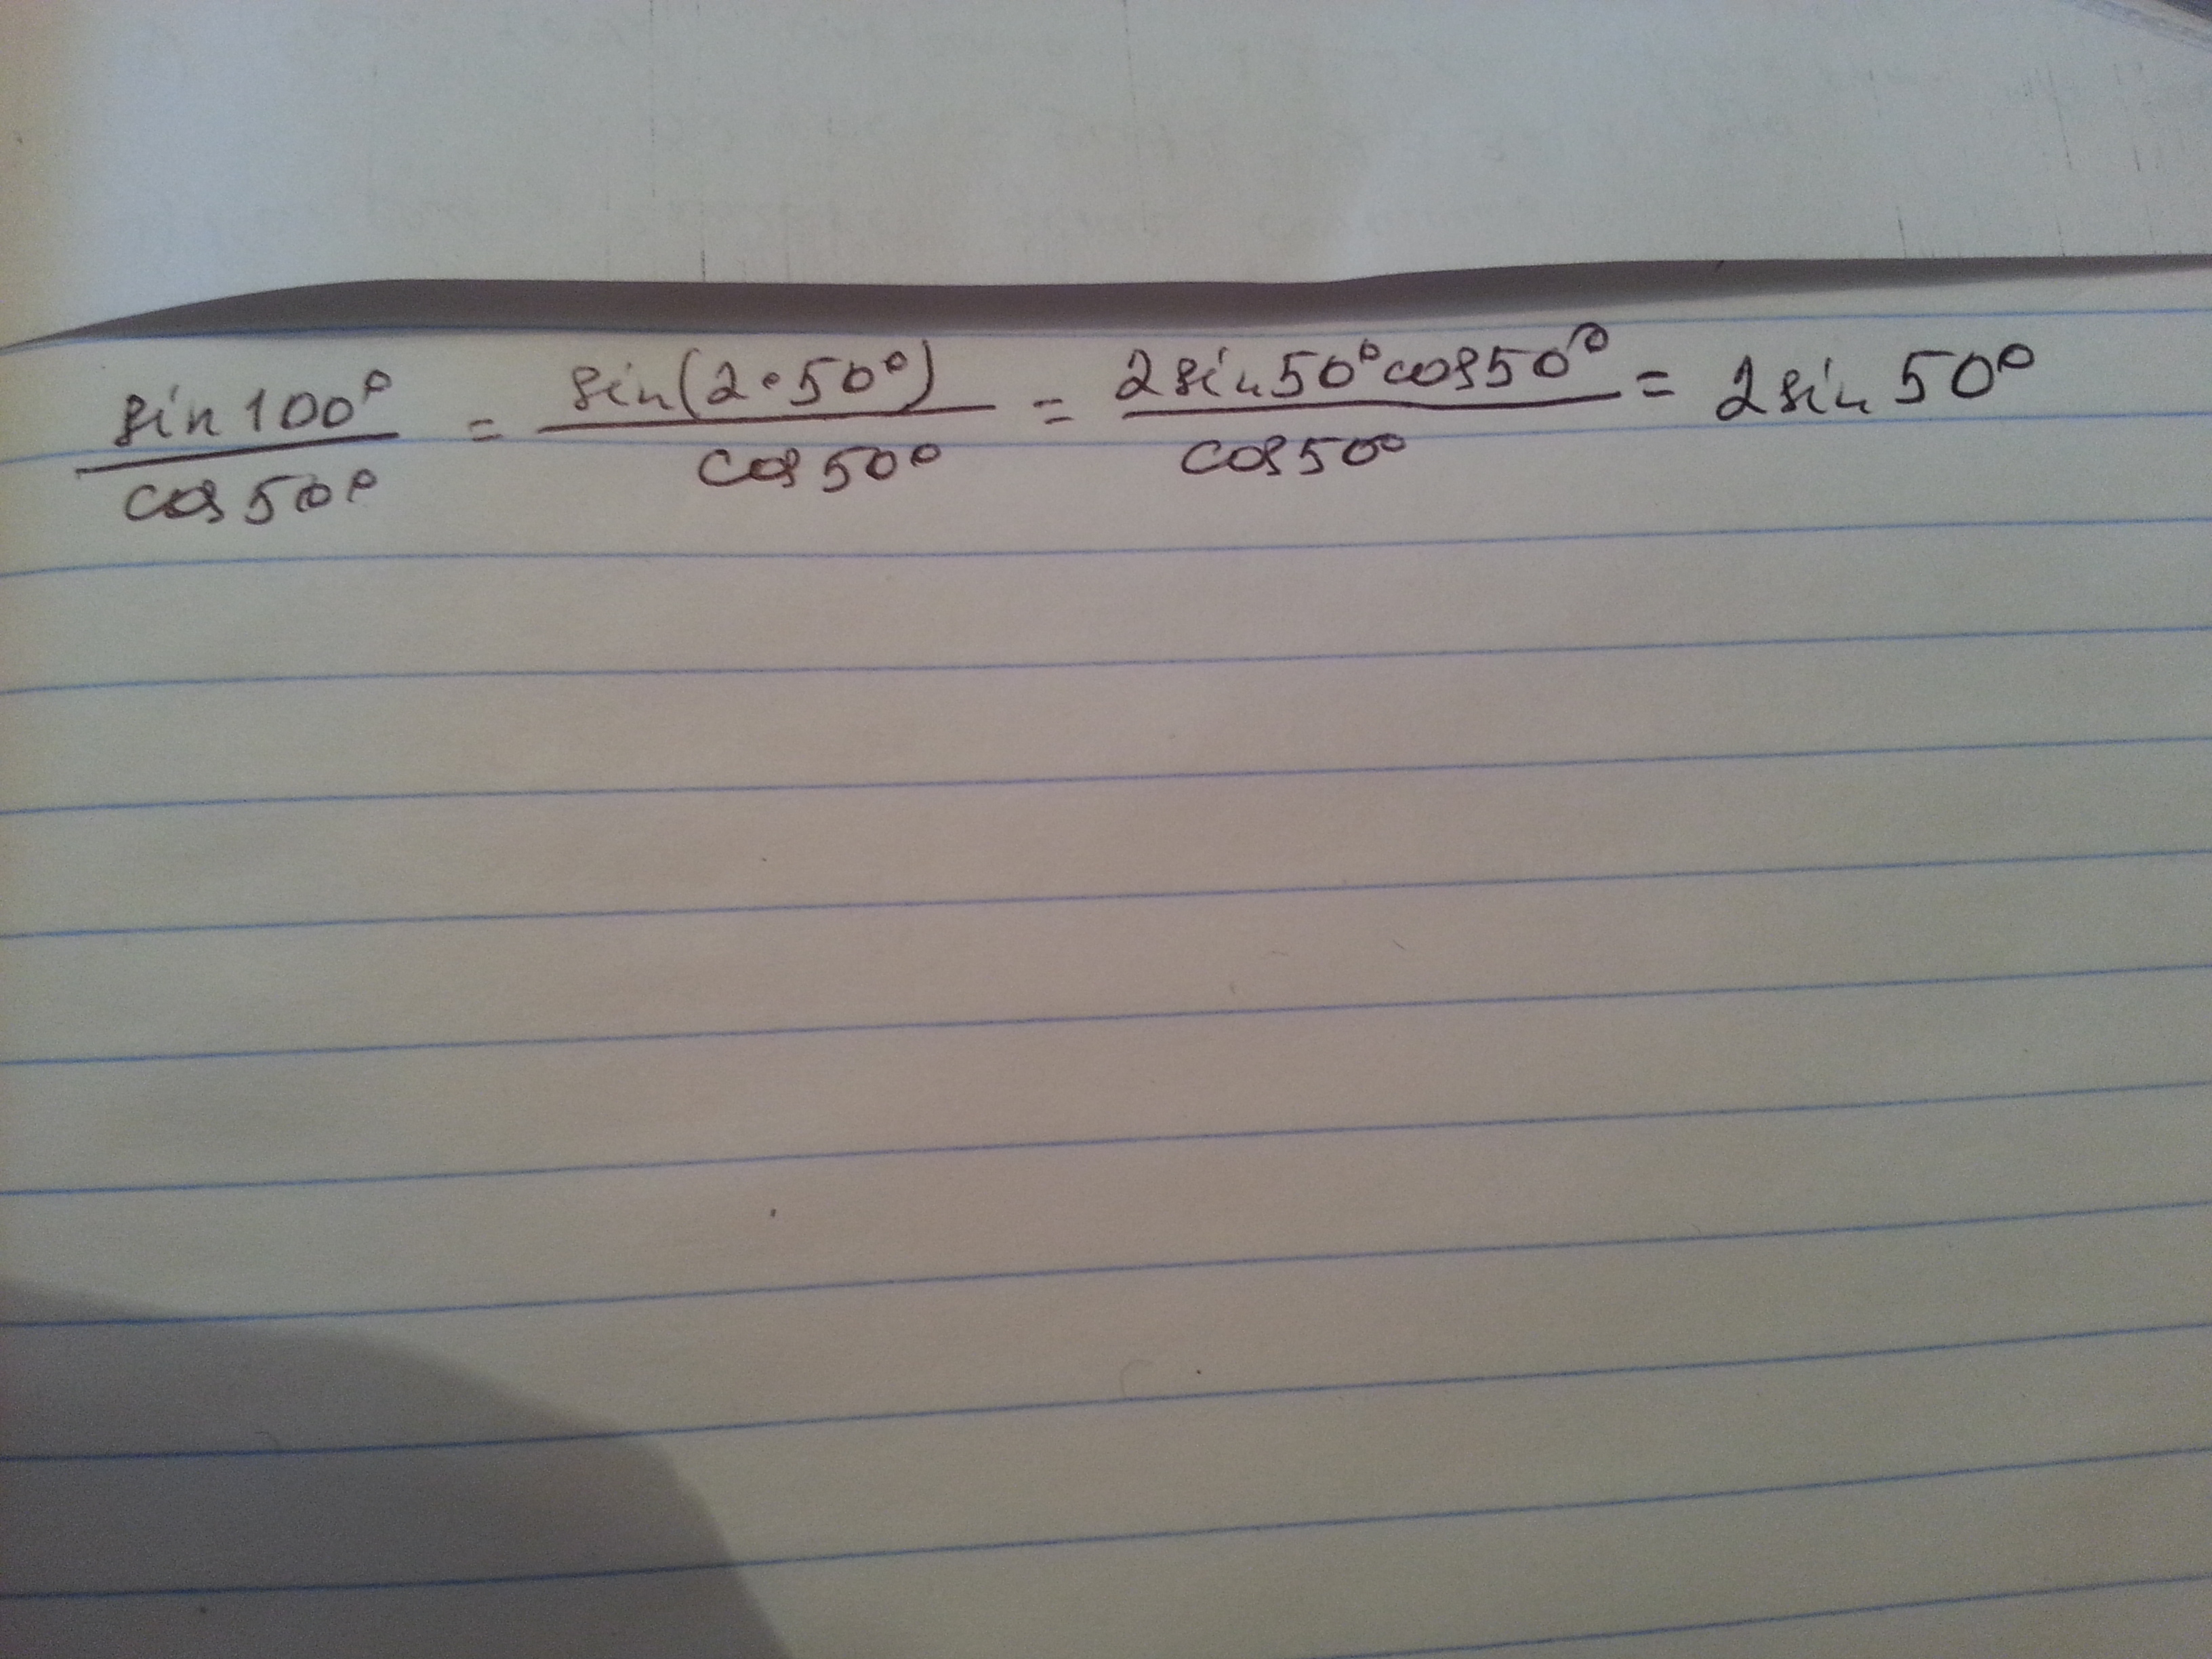 sin 100° / cos 50° = sin(2•50°) / cos 50° = 2 sin 50° cos 50° / cos 50° = 2 sin 50°